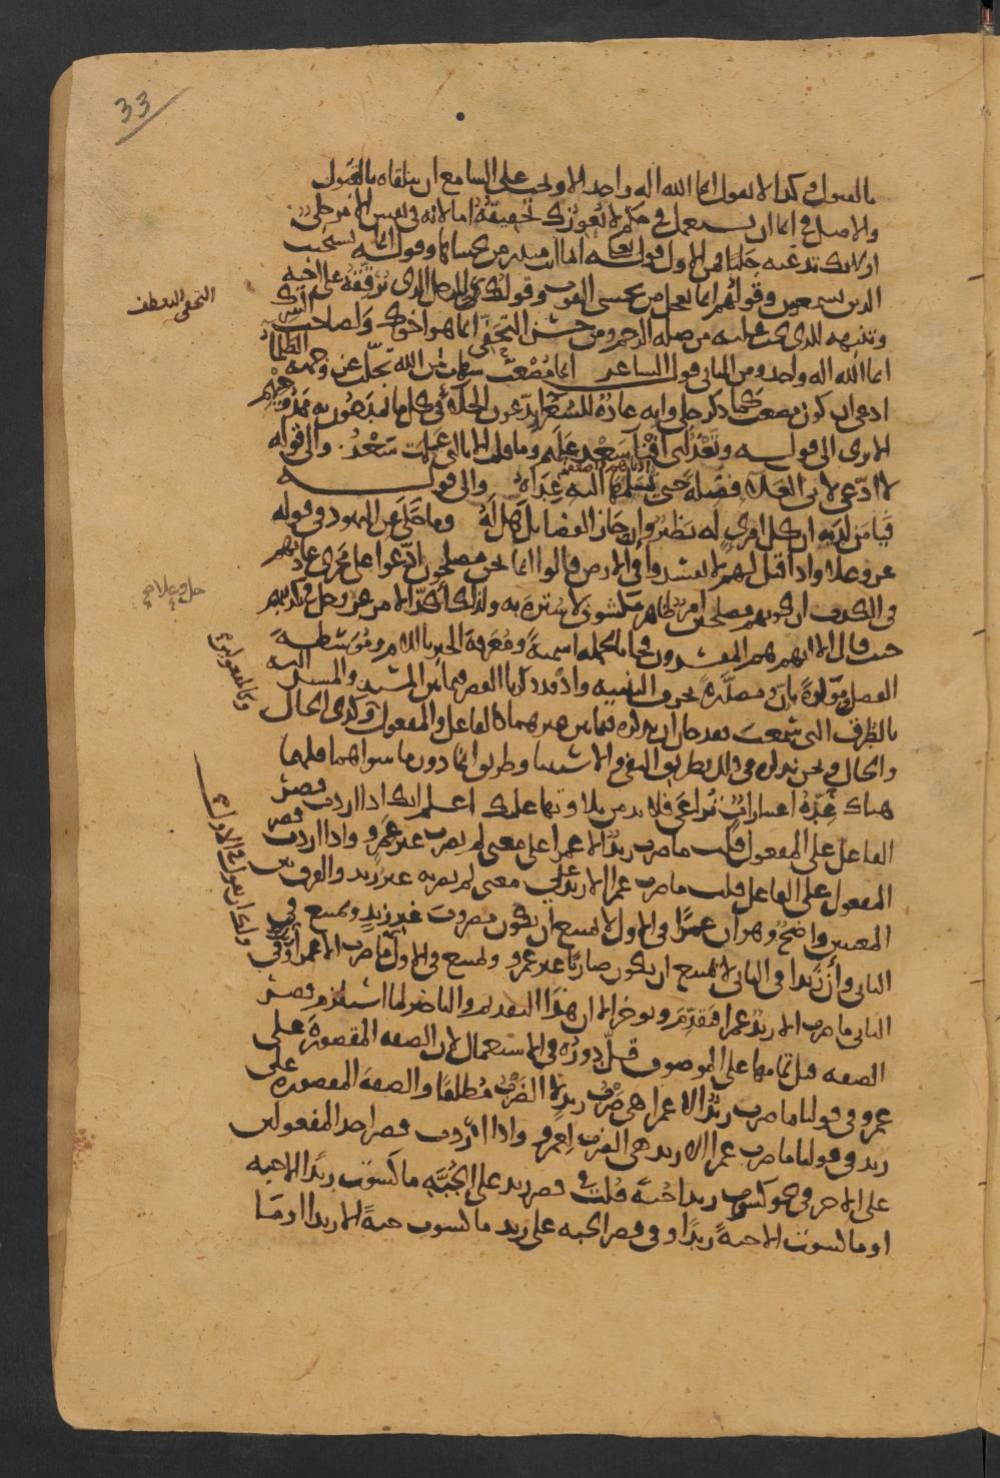 33
بالقبول وكذا لا نقول انما الله اله واحد الا ويجب على السامع ان يتلقاه بالقبول
والاصل في انما ان يستعمل في حكم لا يعوزك تحقيقه اما لانه في نفس الامر جلي
او لانك تدعيه جليا فمن الاول قوله تعالى انما انت منذر من يخشاها وقوله انما يستجيب
الذين يسمعون وقولهم انما يعجل من يخشى الفوت وقولك للرجل الذي ترققه على اخيه
وتنبهه للذي يجب عليه من صلة الرحم ومن حسن التحفي انما هو اخوك ولصاحب الشرك
انما الله اله واحد ومن الثاني قول الشاعر انما مصعب شهاب من الله تجلت عن وجهه الظلماء
ادعى ان كون مصعب كما ذكر جلي وانه عادة للشعراء يدعون الجلاء في كل ما يمدحون به ممدوحيهم
الا ترى الى قوله وتعذلني افناء سعد عليهم وما قلت الا بالتي علمت سعد والى قوله
لا ادعي لابي العلاء فضيلة حتى يسلمها اليه عداه والى قوله
فيا من لديه ان كل امرئ له نظير وان حاز الفضائل كل له وما حكى عن اليهود في قوله
عز وعلا واذا قيل لهم لا تفسدوا في الارض قالوا انما نحن مصلحون ادعوا على مجرى عادتهم
في الكذب ان كونهم مصلحين امر ظاهر مكشوف لا سترة به ولذلك اكد الامر عز وجل في تكذيبهم
حيث قال الا انهم هم المفسدون فجاء بالجملة اسمية ومعرفة الخبر باللام وموسطة
الفصل مؤكدة بان ومصدرة بحرف التنبيه واذ قد ذكرنا القصر فيما بين المسند والمسند اليه
بالطرق التي سمعت فقد حان ان نذكره فيما بين غيرهما كالفاعل والمفعول وكذي الحال
والحال ونحن نذكره في ذلك بطريق النفي والاستثناء وطريق انما دون ما سواهما فلهما
هناك عدة اعتبارات تراعى فلا بد من تلاوتها عليك اعلم انك اذا اردت قصر
الفاعل على المفعول قلت ما ضرب زيد الا عمرا على معنى لم يضرب غير عمرو واذا اردت قصر
المفعول على الفاعل قلت ما ضرب عمرا الا زيد على معنى لم يضربه غير زيد والفرق بين
المعنيين واضح وهو ان عمرا في الاول لا يمتنع ان يكون مضروب غير زيد ويمتنع في
الثاني وان زيدا في الثاني لا يمتنع ان يكون ضاربا غير عمرو ويمتنع في الاول ما ضرب الا عمرا زيد وفي
الثاني ما ضرب الا زيد عمرا فتقدم وتؤخر الا ان هذا التقديم والتاخير لما استلزم قصر
الصفة قبل تمامها على الموصوف قل دوره في الاستعمال لان الصفة المقصورة على
عمرو في قولنا ما ضرب زيد الا عمرا هي ضرب زيد لا الضرب مطلقا والصفة المقصورة على
زيد في قولنا ما ضرب عمرا الا زيد هي الضرب لعمرو واذا اردت قصر احد المفعولين
على الاخر في نحو كسوت زيدا جبة قلت في قصر زيد على الجبة ما كسوت زيدا الا جبة
او ما كسوت الا جبة زيدا وفي قصر الجبة على زيد ما كسوت جبة الا زيدا او ما
التحفي التعطف
جل وعلا
وكالمفعولين
ولك ان تقول في الاول